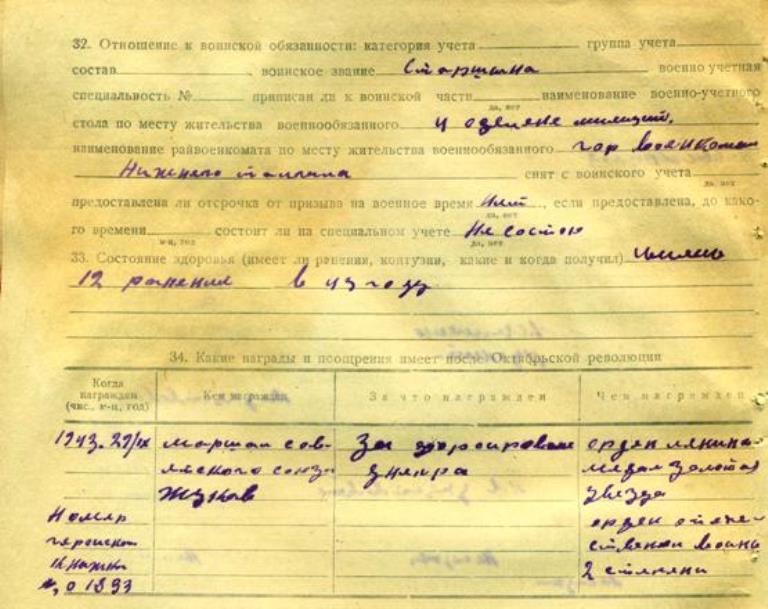 32. Отношение к воинской обязанности: категория учета группа учета
состав , воинское звание Старшина военно учетная
специальность № приписан ли к воинской части наименование военно-учетного
да, нет
стола по месту жительства военнообязанного 4 оделене милиции,
наименование райвоенкомата по месту жительства военнообязанного гор военкомат
Нижнего тагила снят с воинского учета
да, нет
предоставлена ли отсрочка от призыва на военное время Нет , если предоставлена, до како-
да, нет
го времени состоит ли на специальном учете Не состою
м-ц, год да, нет
33. Состояние здоровья (имеет ли ранения, контузии, какие и когда получил) имею
12 ранений в 43 году
34. Какие награды и поощрения имеет после Октябрьской революции
Когда награжден (чис., м-ц, год) Кем награжден За что награжден Чем награжден
1943. 29/IX маршал сов- За форсирование орден ленина
ятского союза днепра медал золотая
Жуков звезда
Номер орден отече-
геройской ственой воины
книжки 2 степени
№ 01893